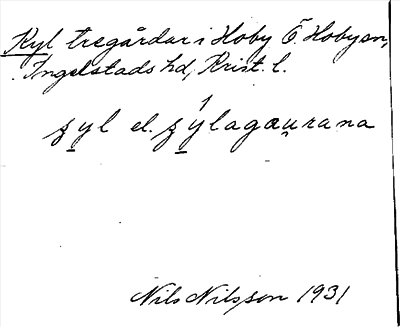 Kyl tregårdar i Hoby Ö. Hoby sn,
Ingelstads hd, Krist. l.
ʂyl el. ʂýlagaurana
Nils Nilsson 1931